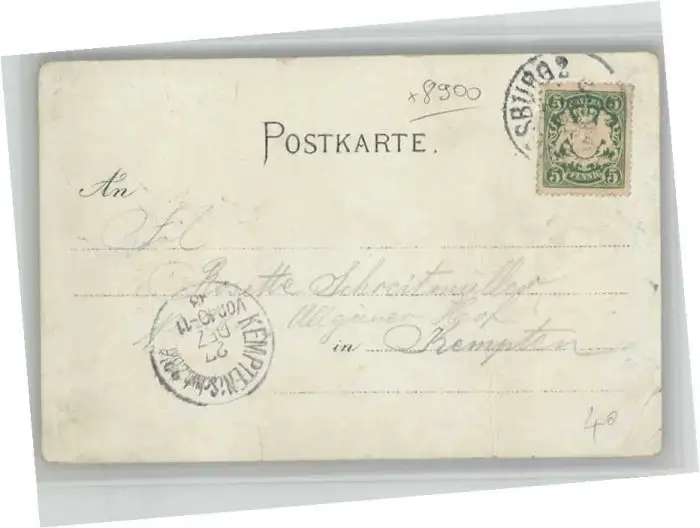 x8900
SBURG 2
BAYERN
5 5
PFENNIG
5 5
POSTKARTE.
An
Frl.
Schreitmüller
Allgäuer Hof
in Kempten
KEMPTEN (Schwaben)
VOR 10-11
27
DEZ
40